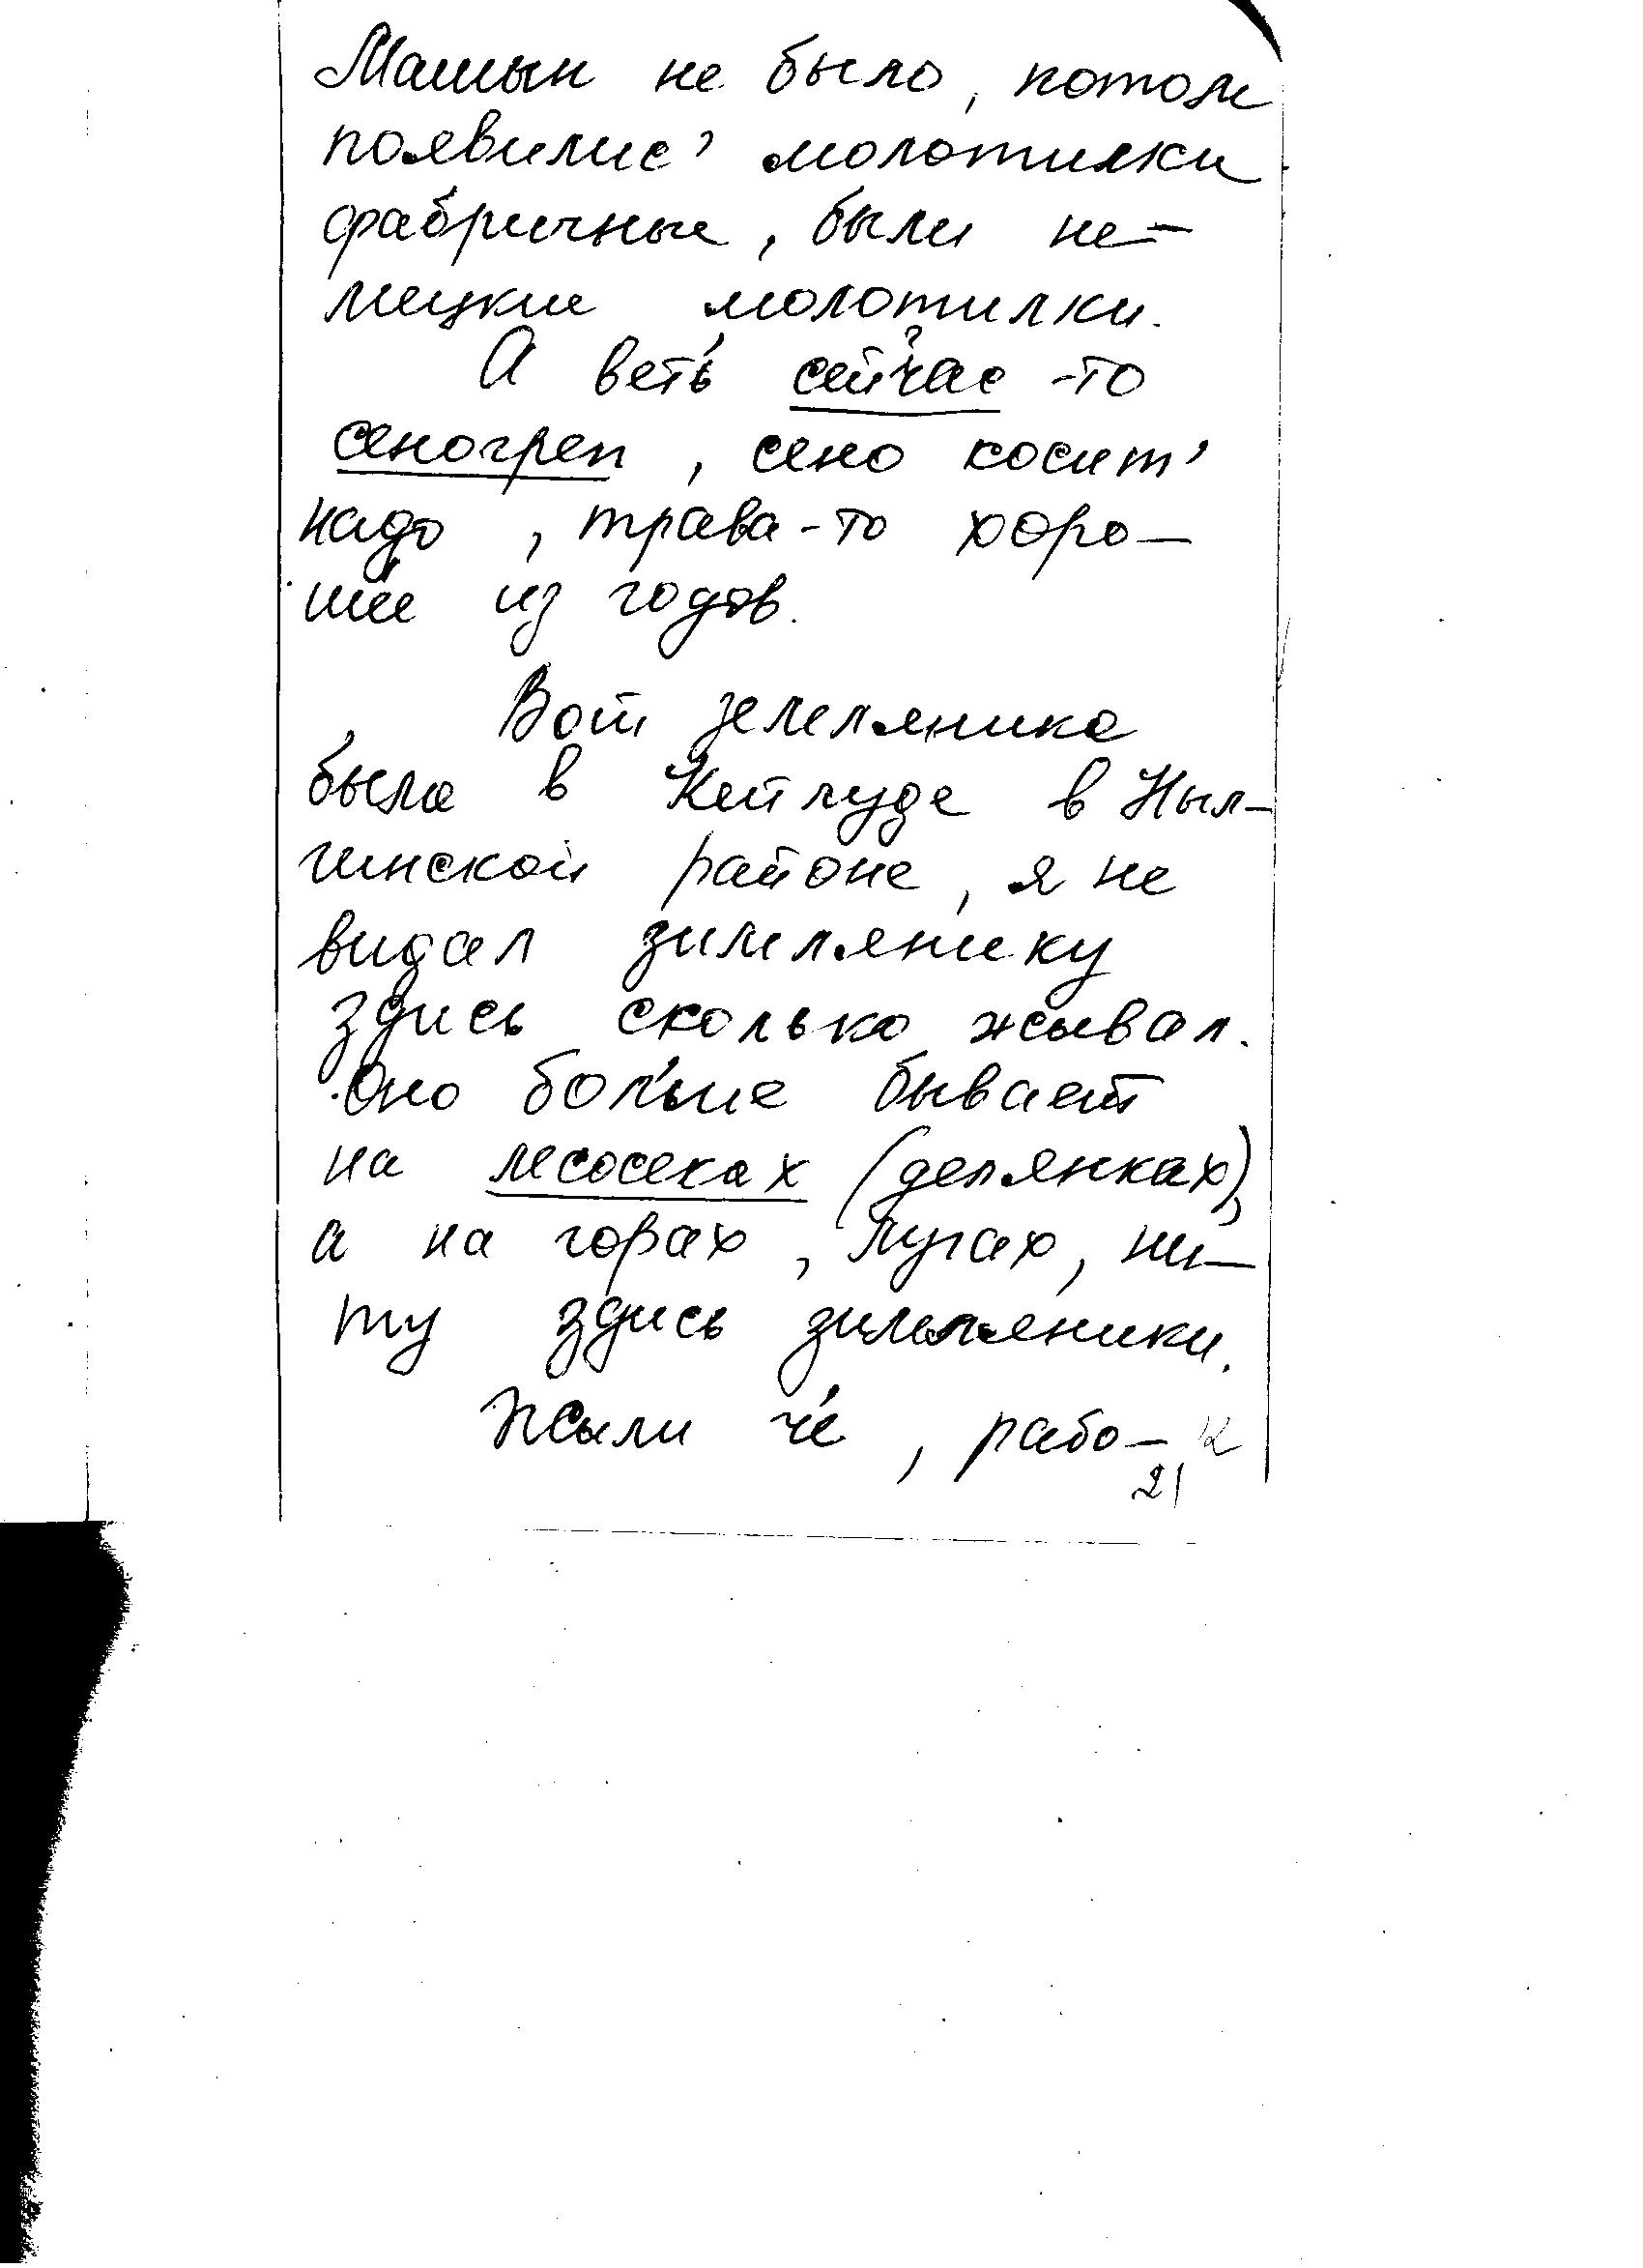 Машын не было, потом
появилис' молотилки
фабричные, были не-
мецкие молотилки.
А веть сейчас-то
сеногреп, сено косит'
надо, трава-то хоро-
шее из годов.
Вот земляника
была в Кейлуде в Ныл-
гинской районе, я не
видал зимлянику
здись сколько жывал.
Оно бол'ше бывает
на лесосеках (делянках),
а на горах, лугах, ни-
ту здись зимляники.
Жыли че, рабо-
21